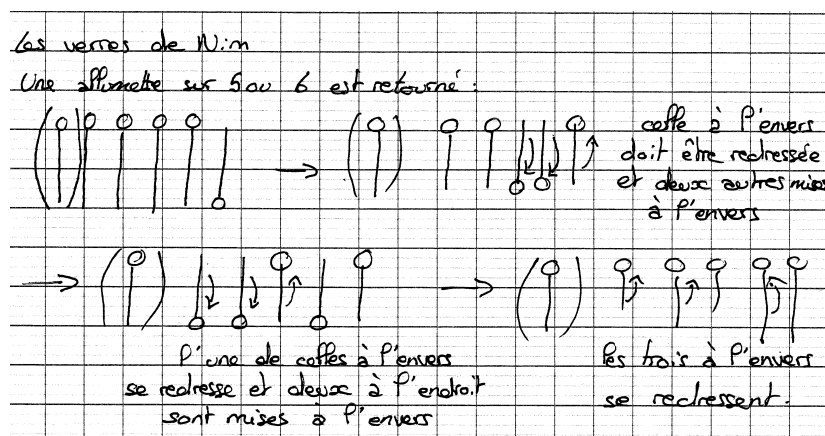 Les verres de Nim
Une allumette sur 5 ou 6 est retourné :
celle à l'envers
doit être redressée
et deux autres mises
à l'envers
l'une de celles à l'envers
se redresse et deux à l'endroit
sont mises à l'envers
les trois à l'envers
se redressent.